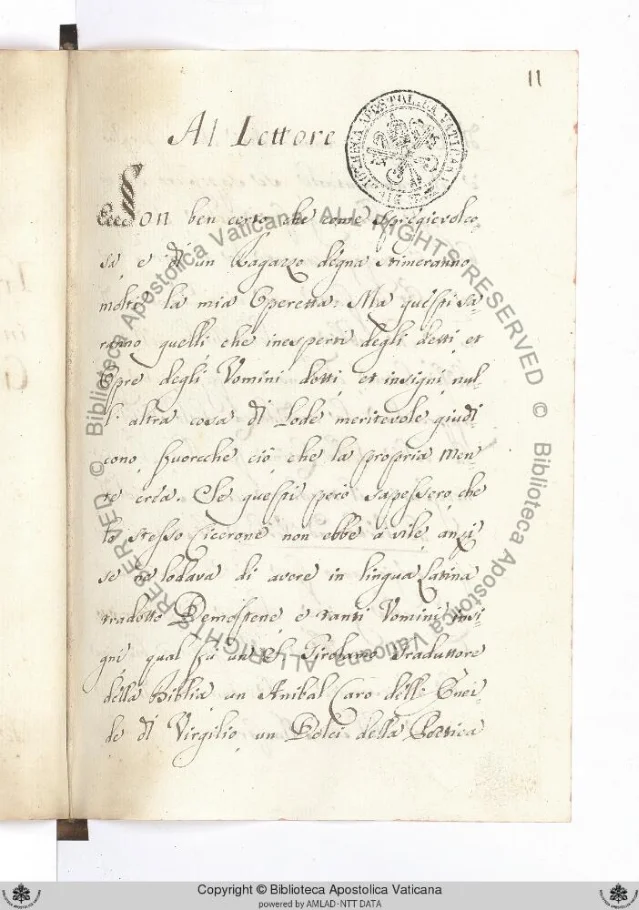 11
Al Lettore
Son ben certo che come spregievol co-
sa, e di un Ragazzo degna stimeranno
molti la mia Operetta: Ma questi sa-
ranno quelli che inesperti degli detti, et
Opre degli Uomini dotti, et insigni, nul-
l'altra cosa di Lode meritevole giudi
cono fuorche ciò, che la propria Men-
te crèa. Se questi però sapessero, che
lo stesso Cicerone non ebbe à vile, anzi
se ne lodava di avere in lingua Latina
tradotto Demostene, e tanti Uomini insi-
gni qual fù un S. Girolamo traduttore
della Biblia, un Anibal Caro dell'Enei-
de di Virgilio, un Dolci della Poetica
BIBLIOTHECA APOSTOLICA VATICANA
© Biblioteca Apostolica Vaticana ALL RIGHTS RESERVED
© Biblioteca Apostolica Vaticana ALL RIGHTS RESERVED
Copyright © Biblioteca Apostolica Vaticana
powered by AMLAD-NTT DATA